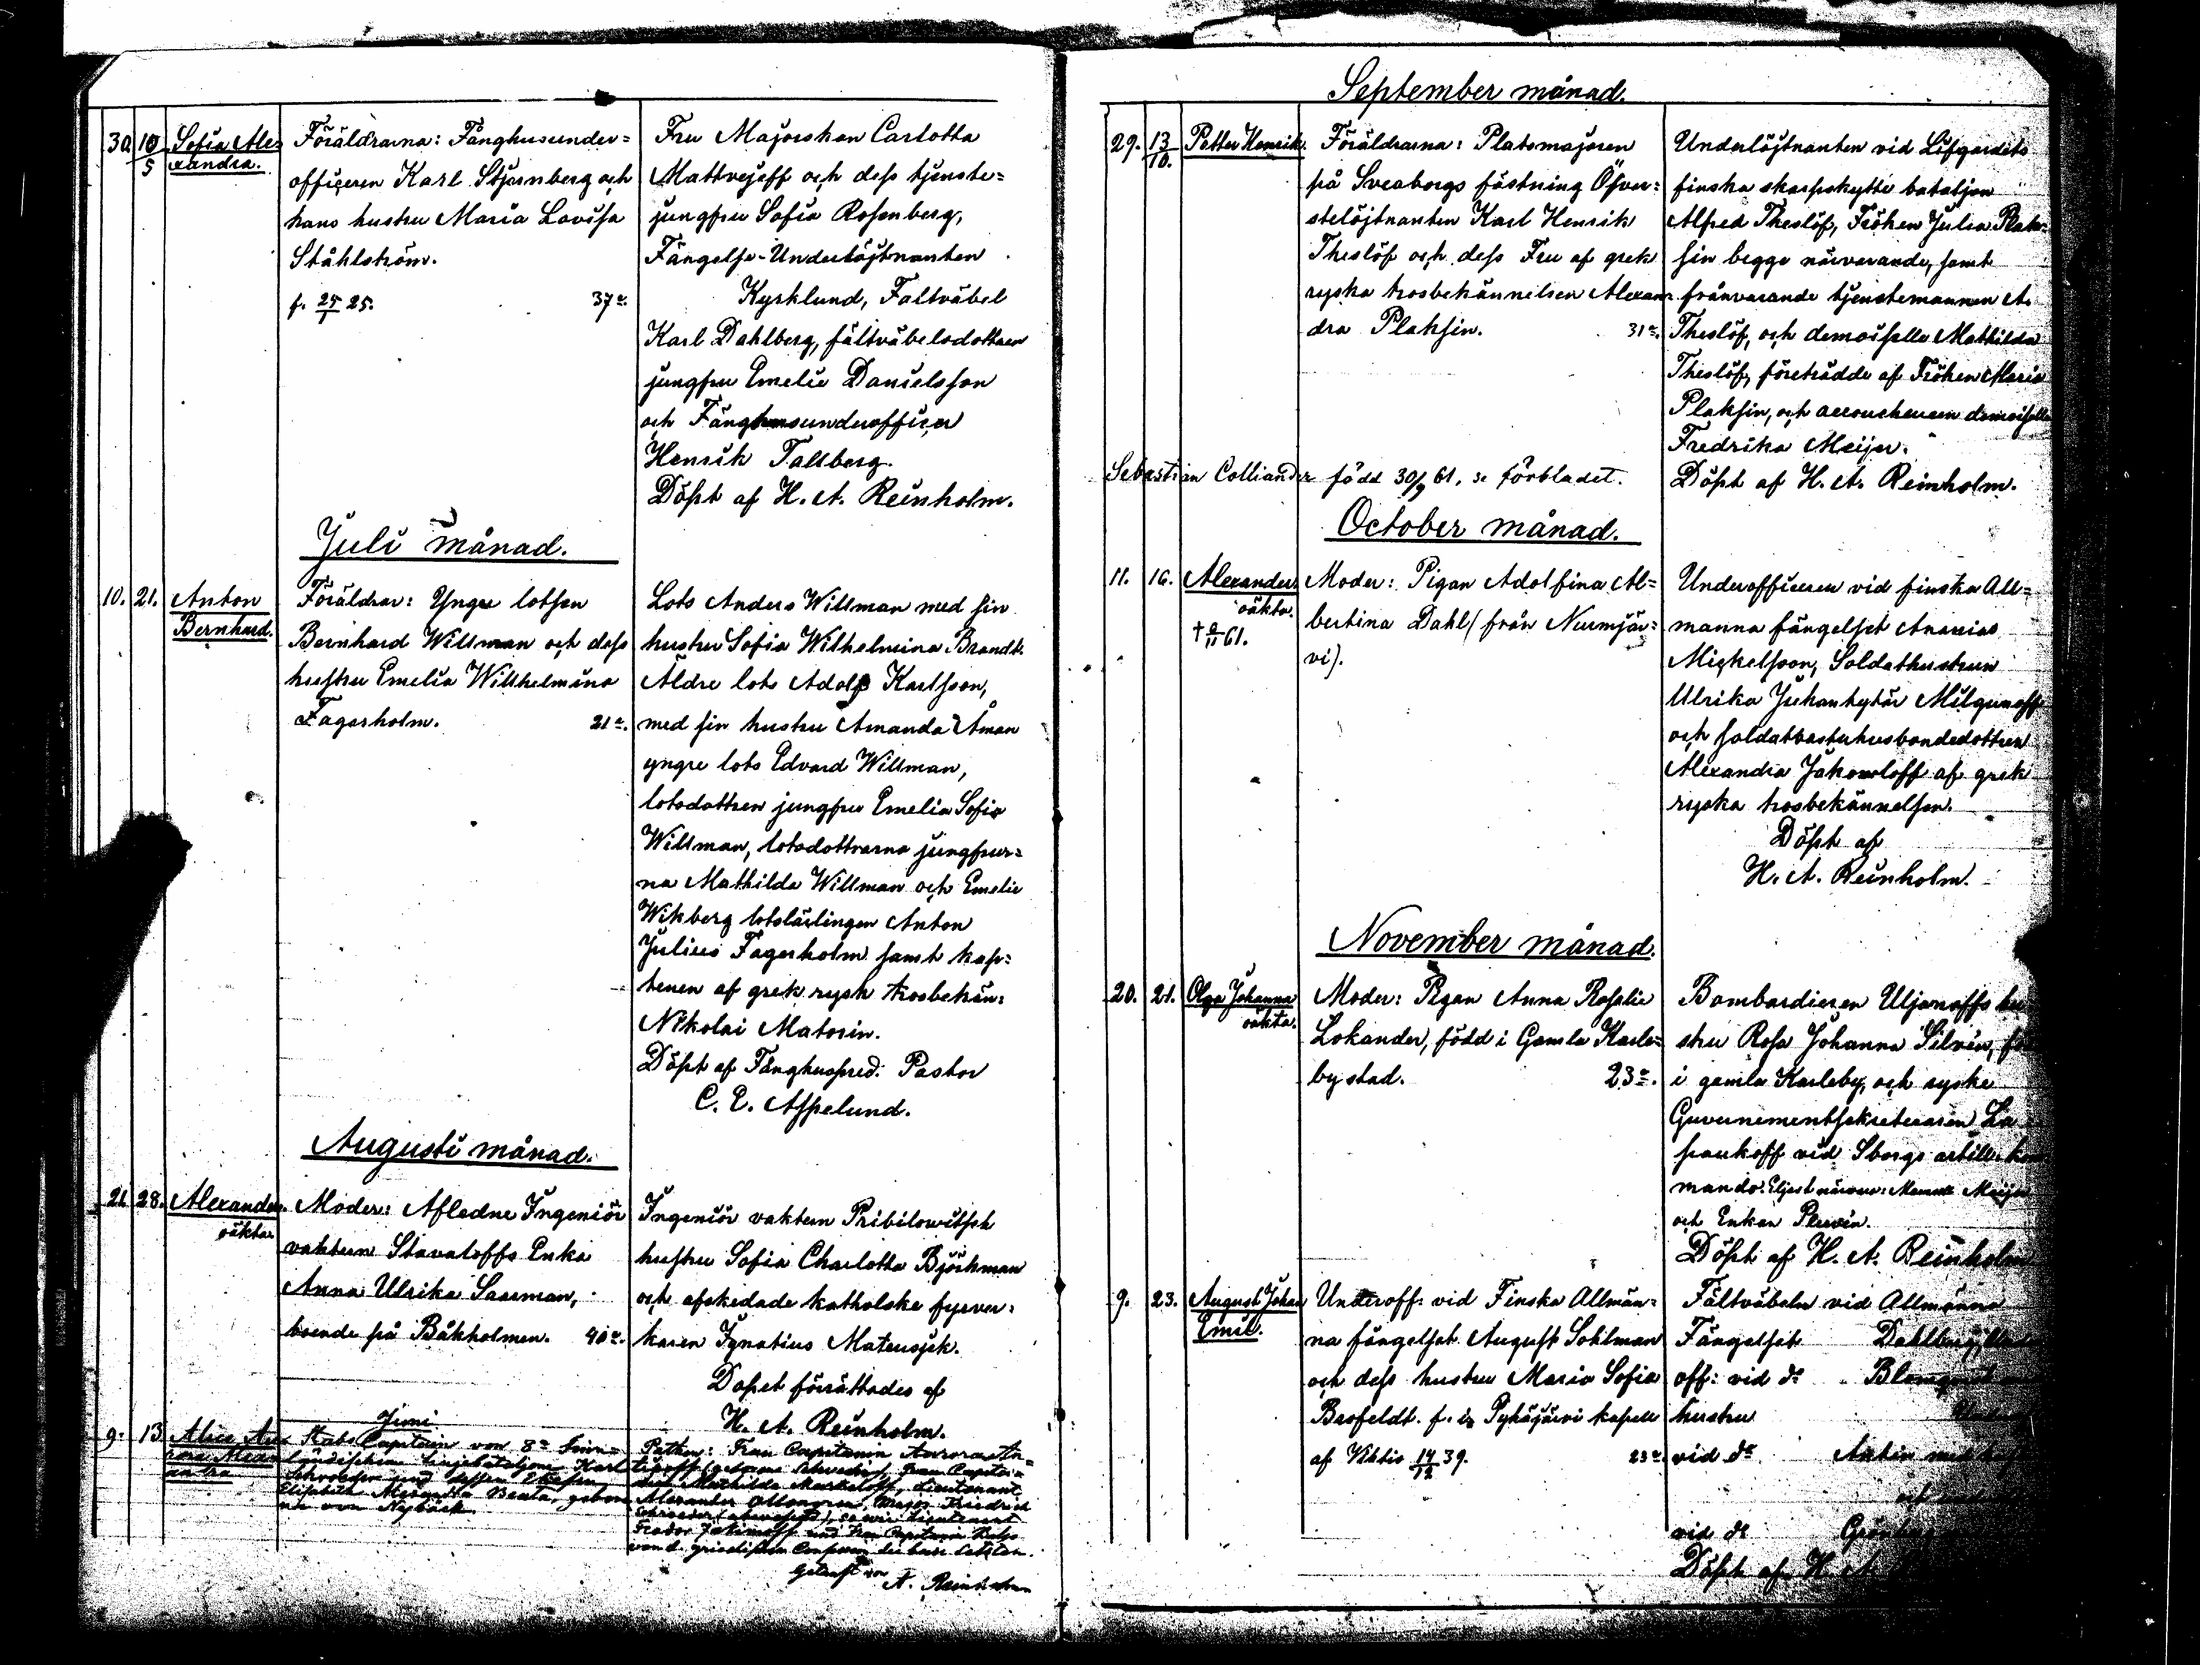 30 10/5 Sofia Ale=
xandra.
Föräldrarna: Fånghusunder=
officeren Karl Stjernberg och
hans hustru Maria Lovisa
Ståhlström.
f. 24/1 25. 37 år.
Fru Majorskan Carlotta
Mattvejeff och dess tjenste=
jungfru Sofia Rosenberg,
Fängelse-Underlöjtnanten
Kyrklund, Fältväbel
Karl Dahlberg, fältväbelsdottren
jungfru Emelie Danielsson
och Fånghusunderofficer
Henrik Tallberg.
Döpt af H. A. Reinholm.
Juli månad.
10. 21. Anton
Bernhard.
Föräldrar: Yngre lotsen
Bernhard Willman och dess
hustru Emelia Wilhelmina
Fagerholm. 21 år.
Lots Anders Willman med sin
hustru Sofia Wilhelmina Brandt.
Äldre lots Adolf Karlsson,
med sin hustru Amanda Åman
yngre lots Edvard Willman,
lotsdottren jungfru Emelia Sofia
Willman, lotsdottrarna jungfrur=
na Mathilda Willman och Emelie
Wikberg lotslärlingen Anton
Julius Fagerholm samt kap=
tenen af grek. rysk trosbekän:
Nikolai Matorin.
Döpt af Fånghuspred. Pastor
C. E. Aspelund.
Augusti månad.
21. 28. Alexander.
oäkta.
Moder: Aflidne Ingeniör
vaktern Stavaloffs Enka
Anna Ulrika Saxman,
boende på Båkholmen. 40 år.
Ingeniör vaktern Pribilowitsch
hustru Sofia Charlotta Björkman
och afskedade katholske fyrver=
karen Ignatius Mateusjek.
Dopet förrättades af
H. A. Reinholm.
Juni
9. 13. Alice
Stabs Capitain von 8n Finn=
ländischen Linjebataljon Karl
Schroeder und dessen Ehefrau
Elisabeth Alexandra Beata, gebor=
ne von Nybäck.
Pathen: Frau Capitanin Aurora
Frau Capita=
nin Mathilda Markeloff, Lieutenant
Alexander Major Friedrich
Schroeder sowie Lieutenant
Feodor und Frau Capitanin
von d. griechischen
Getauft von
A. Reinholm
September månad.
29. 13/10. Petter Henrik.
Föräldrarna: Platsmajoren
på Sveaborgs fästning Öfver=
stelöjtnanten Karl Henrik
Theslöf och dess Fru af grek
ryska trosbekännelsen Alexan=
dra Plaksin. 31 år.
Underlöjtnanten vid Lifgardets
finska skarpskytte bataljon
Alfred Theslöf, Fröken Julia Plak=
sin begge närvarande, samt
frånvarande tjenstemannen A.
Theslöf, och demoiselle Mathilda
Theslöf, företrädde af Fröken Maria
Plaksin, och accoucheusen demoiselle
Fredrika Meijer.
Döpt af H. A. Reinholm.
Sebastian Colliander född 30/9 61, se förbladet.
October månad.
11. 16. Alexander
oäkta.
† 9/11 61.
Moder: Pigan Adolfina Al=
bertina Dahl (från Nurmijär=
vi).
Underofficeren vid finska All=
männa fängelset Ananias
Mickelsson, Soldathustrun
Ulrika Juhantytär Milgunoff
och soldatbastuhusbondedottren
Alexandra Jakowloff af grek
ryska trosbekännelsen.
Döpt af
H. A. Reinholm.
November månad.
20. 21. Olga Johanna
oäkta.
Moder: Pigan Anna Rosalie
Lokander, född i Gamla Karle=
by stad. 23 år.
Bombardieren Uljanoffs hu
stru Rosa Johanna Silvén,
i gamla Karleby, och ryske
Guvernementsekreteraren La
paukoff vid Sborgs artill.
mando. Eljest närvar: Meijer
och Enkan Plewin.
Döpt af H. A. Reinholm
9. 23. August Johan
Emil.
Underoff: vid Finska Allmän=
na fängelset August Sohlman
och dess hustru Maria Sofia
Brofeldt. f. i Pyhäjärvi kapell
af Vihtis 14/12 39. 23 år
Fältväbeln vid Allmänna
Fängelset Dahlberg,
off: vid do Blomqvist
hustru
vid do Antin med
vid do
Döpt af H. A.